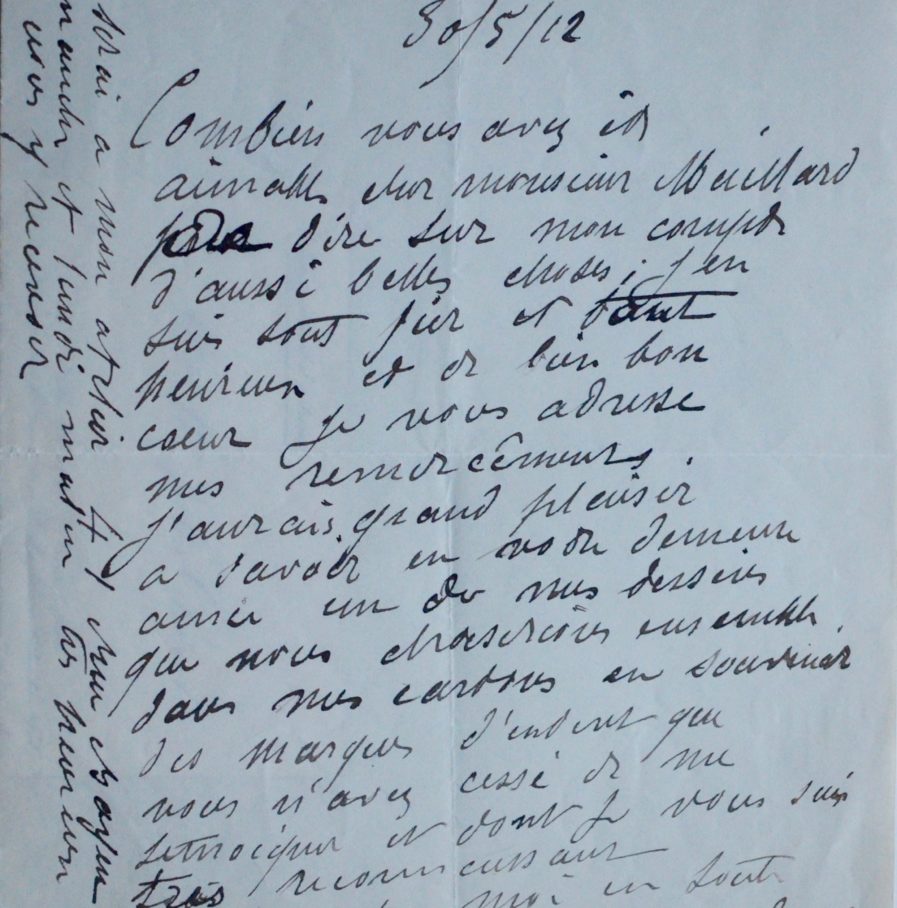 30/5/12
Combien vous avez été
aimable cher monsieur Maillard
pour dire sur mon compte
d'aussi belles choses, j'en
suis tout fier et tout
heureux et de bien bon
coeur je vous adresse
mes remercîments.
J'aurais grand plaisir
a savoir en votre demeure
amie un de mes dessins
que nous choisirions ensemble
dans mes cartons en souvenir
des marques d'interet que
vous n'avez cessé de me
temoigner et dont je vous suis
très reconnaissant
moi en toute
serai a mon atelier 4, rue
manche et lundi matin tres heureux
vous y recevoir